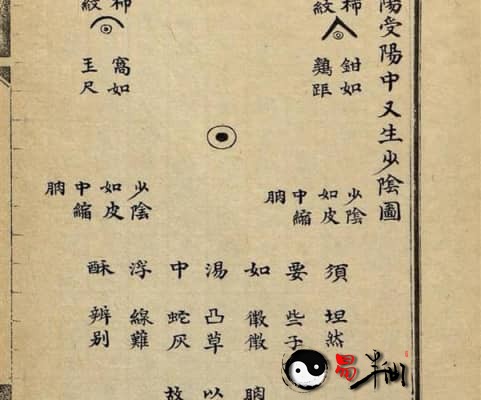 陽受陽中又生少陰圖
柿
紋
鉗如
鷄距
柿
紋
窩如
王尺
少陰
如皮
中縮
肭
少陰
如皮
中縮
肭
須坦然
要些子
如微微肭
湯凸草以
中蛇灰故
浮線難
酥辨别
易半仙